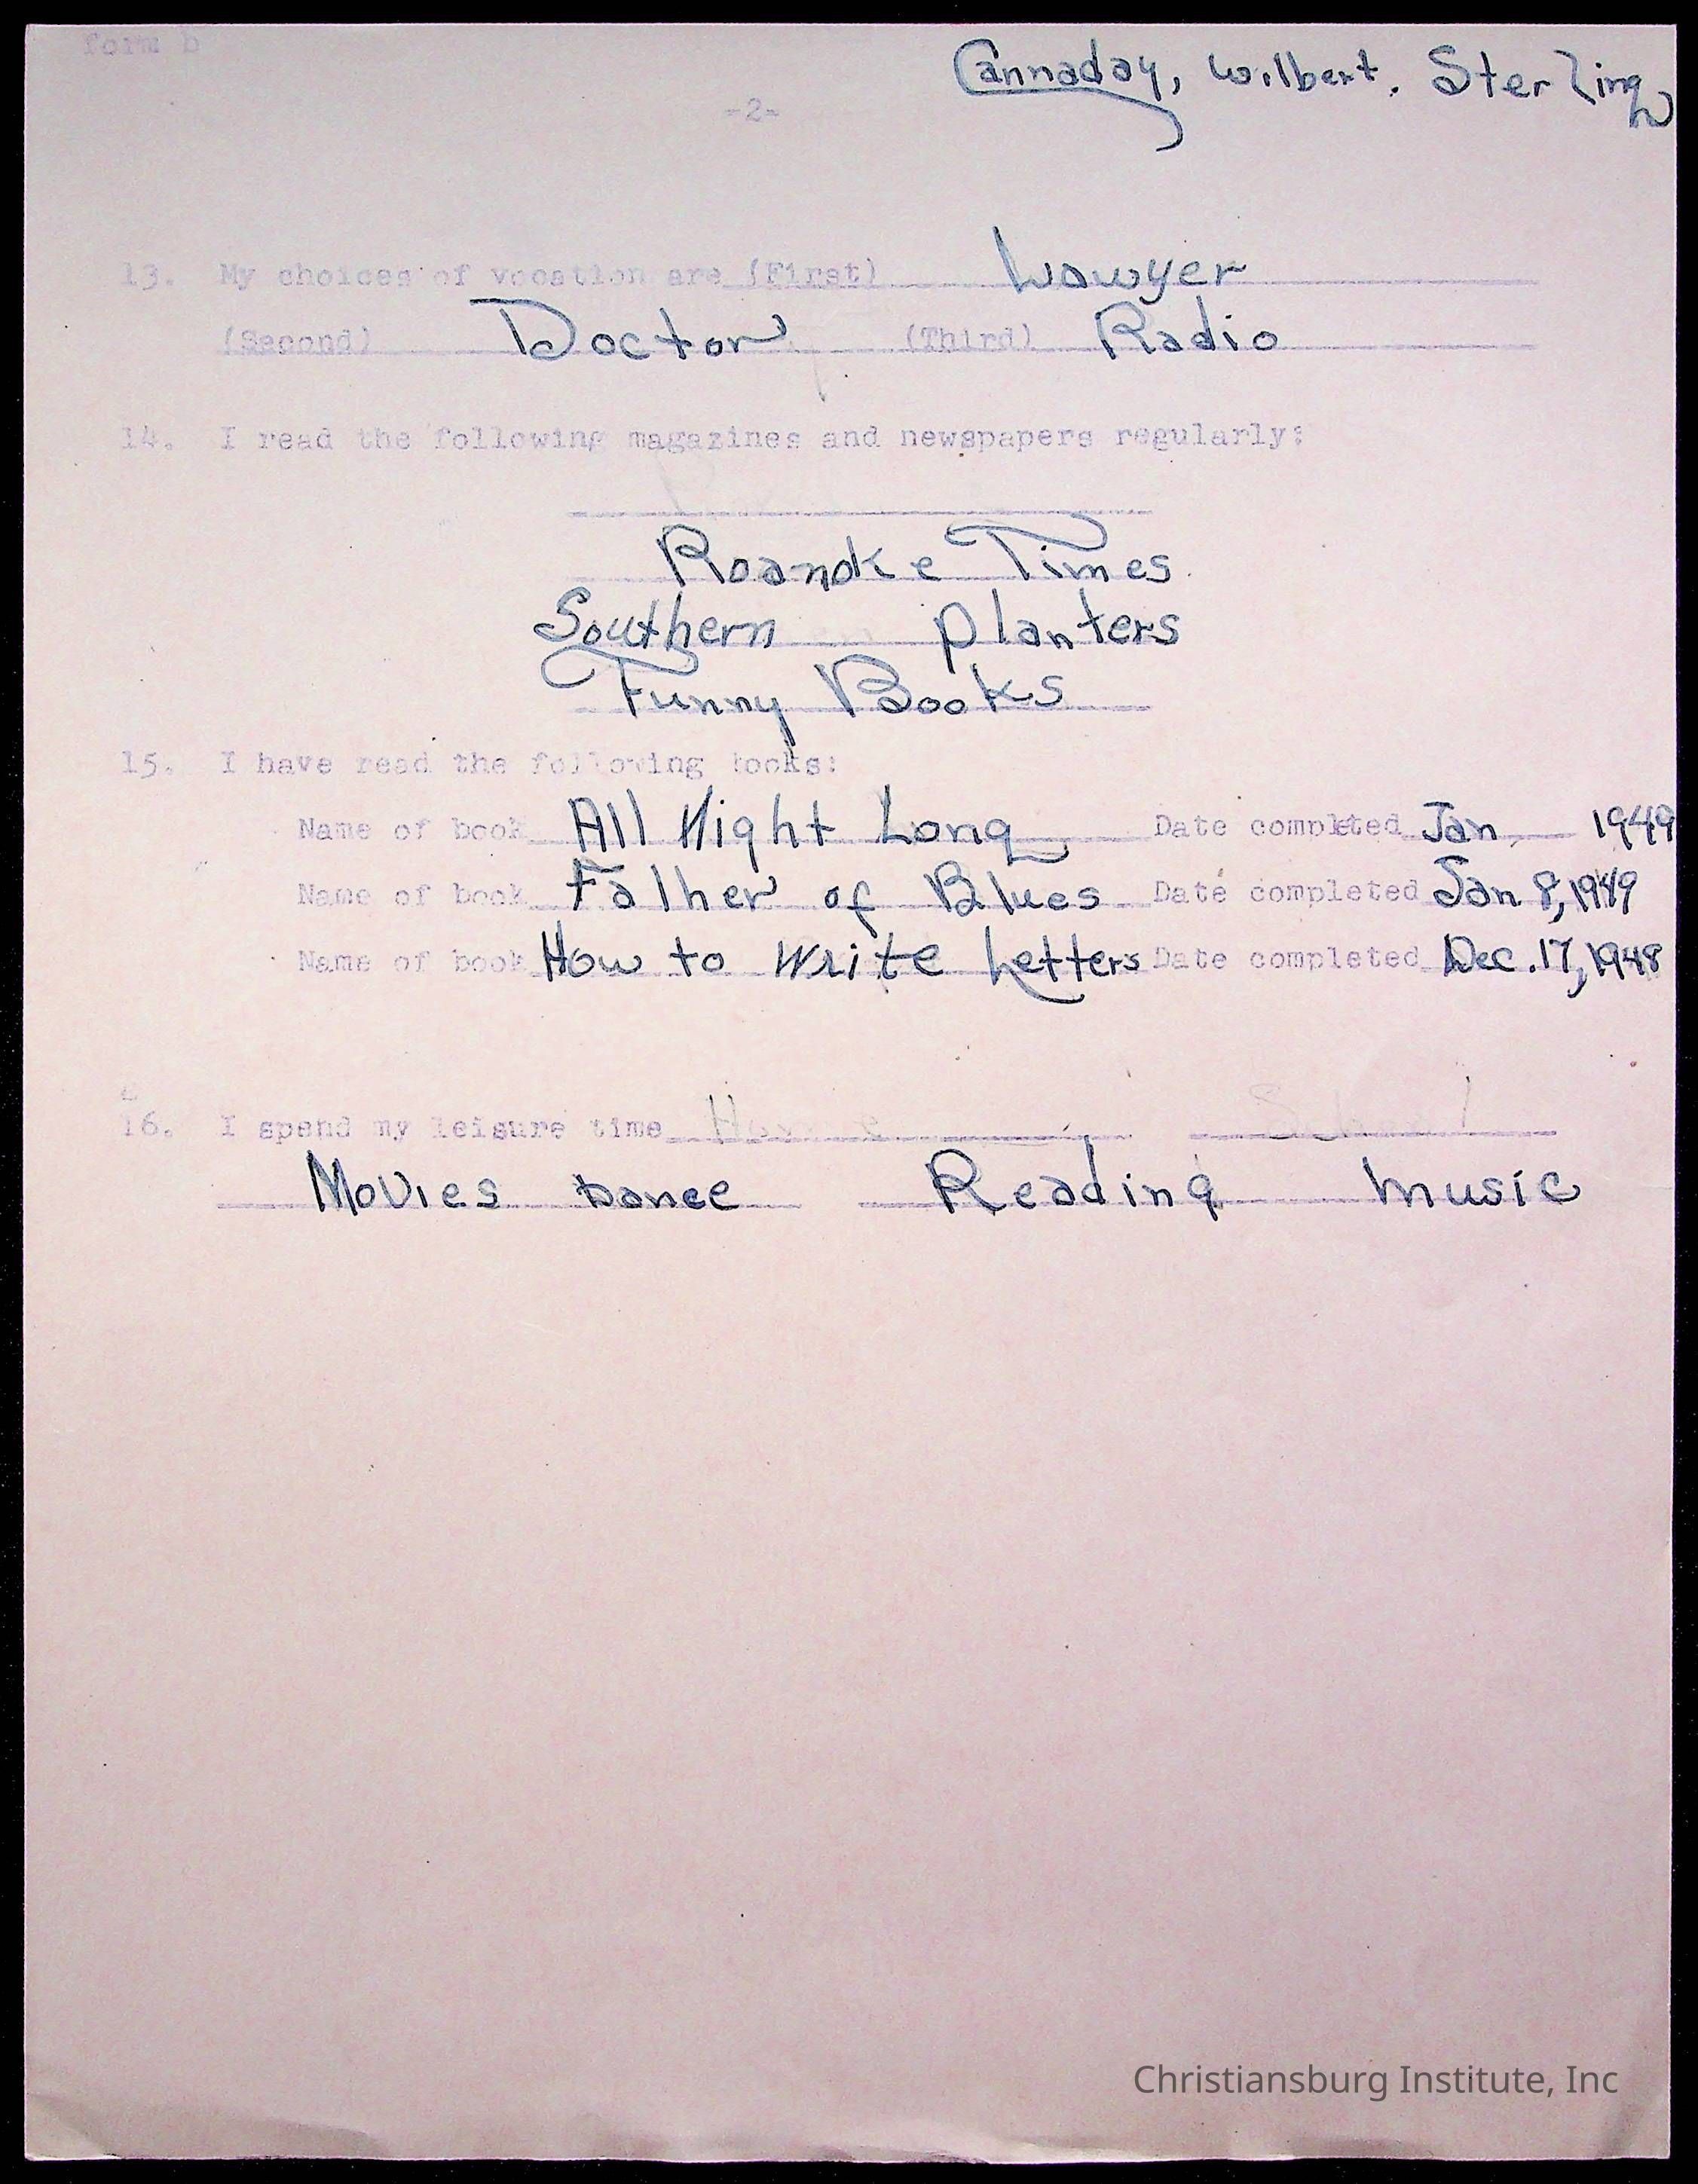 form b
Cannaday, Wilbert. Sterling
-2-
13. My choices of vocation are (First) Lawyer
(Second) Doctor (Third) Radio
14. I read the following magazines and newspapers regularly:
Roanoke Times
Southern Planters
Funny Books
15. I have read the following books:
Name of book All Night Long Date completed Jan 1949
Name of book Father of Blues Date completed Jan 8, 1949
Name of book How to Write Letters Date completed Dec. 17, 1948
16. I spend my leisure time Home School
Movies Dance Reading Music
Christiansburg Institute, Inc